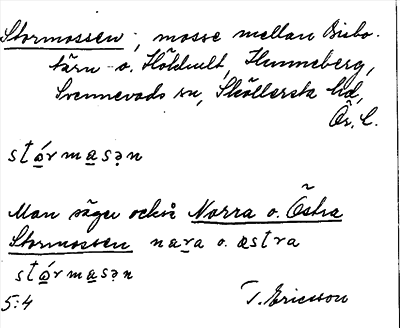 Stormossen, mosse mellan Bisbo-
tärn o. Hökhult, Hunneberg,
Svennevads sn, Sköllersta hd,
Ör. l.
stǿrmasən
Man säger också Norra o. Östra
Stormossen nara o. astra
stǿrmasən
5:4 T. Ericsson